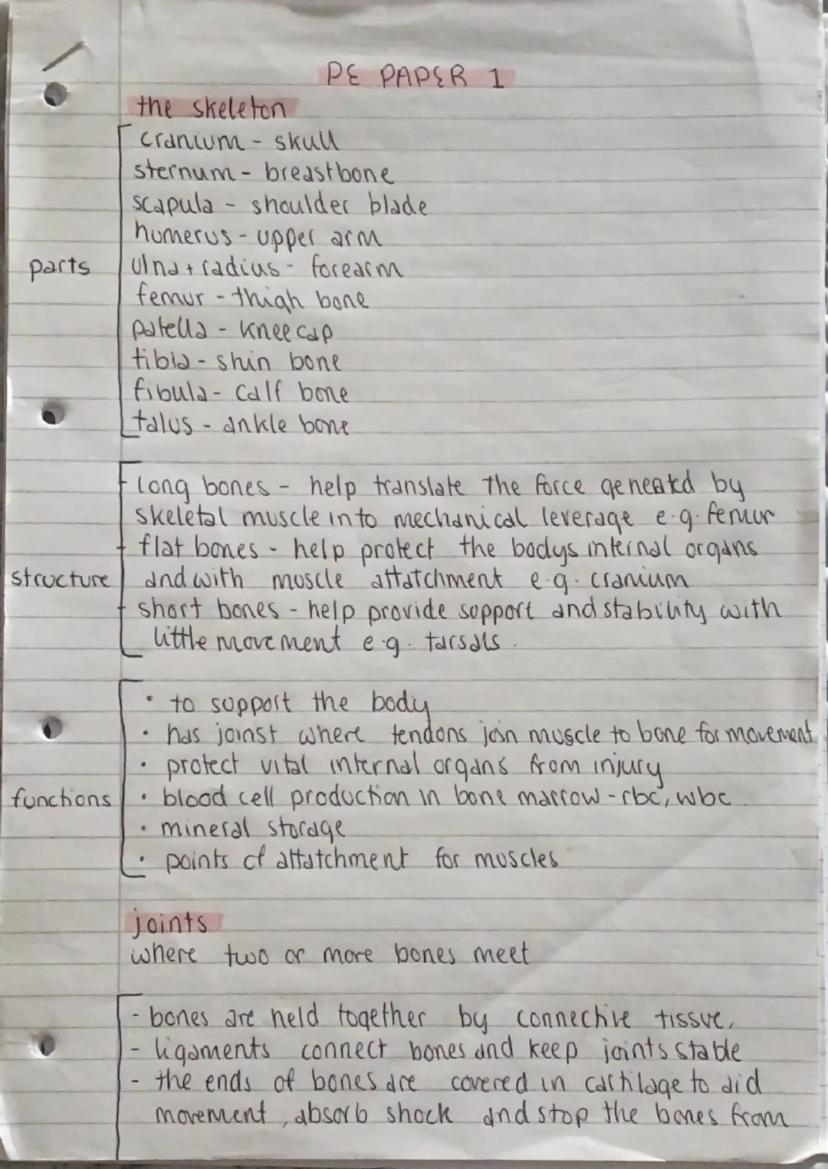 PE PAPER 1
the skeleton
cranium - skull
sternum - breastbone
scapula - shoulder blade
humerus - upper arm
parts
ulna + radius - forearm
femur - thigh bone
patella - kneecap
tibia - shin bone
fibula - calf bone
talus - ankle bone
long bones - help translate the force geneatd by
skeletal muscle into mechanical leverage e.g. femur
flat bones - help protect the bodys internal organs
structure
and with muscle attatchment e.g. cranium
short bones - help provide support and stability with
little movement e.g. tarsals.
• to support the body
• has joinst where tendons join muscle to bone for movement
• protect vital internal organs from injury
functions
• blood cell production in bone marrow - rbc, wbc.
• mineral storage
• points of attatchment for muscles
joints
where two or more bones meet
- bones are held together by connective tissue.
- ligaments connect bones and keep joints stable
- the ends of bones are covered in cartilage to aid
movement, absorb shock and stop the bones from